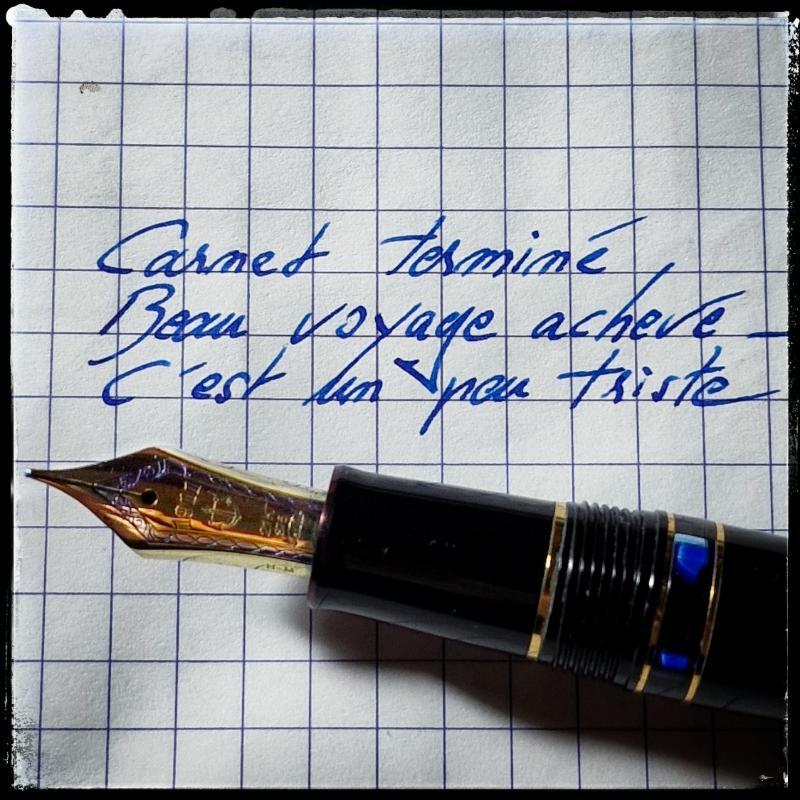 Carnet terminé,
Beau voyage achevé -
C'est un peu triste